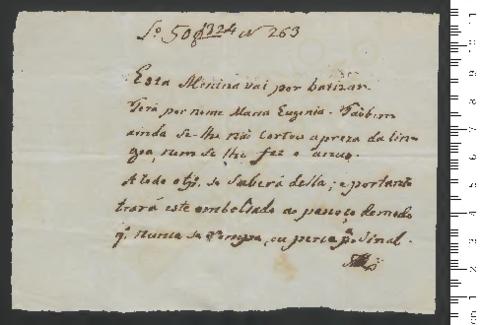 Lo. 50 f 1324 No 263
Esta Menina vai por batizar.
Terá por nome Maria Eugenia. Taobem
ainda se lhe não cortou a preza da lin-
goa, nem se lhe fez o
A todo o tpo. se saberá della; e portanto
trará este embolsado ao pescoço de modo
q. nunca se rompa, ou perca po. Sinal.